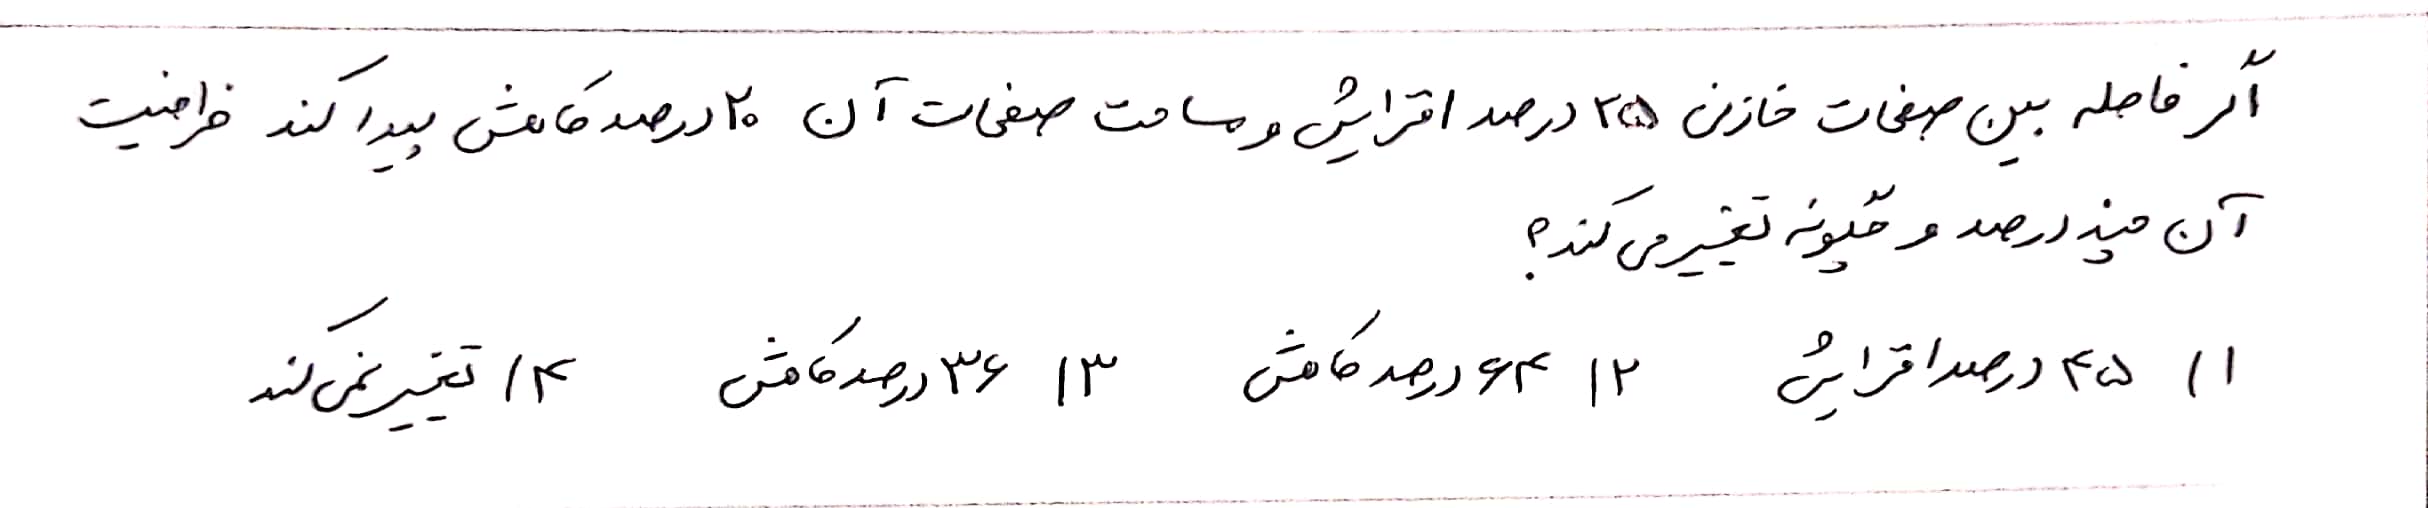 اگر فاصله بین صفحات خازن ۲۵ درصد افزایش و مساحت صفحات آن ۲۰ درصد کاهش پیدا کند ظرفیت
آن چند درصد و چگونه تغییر می‌کند؟
۱) ۴۵ درصد افزایش ۲) ۶۴ درصد کاهش ۳) ۳۶ درصد کاهش ۴) تغییر نمی‌کند